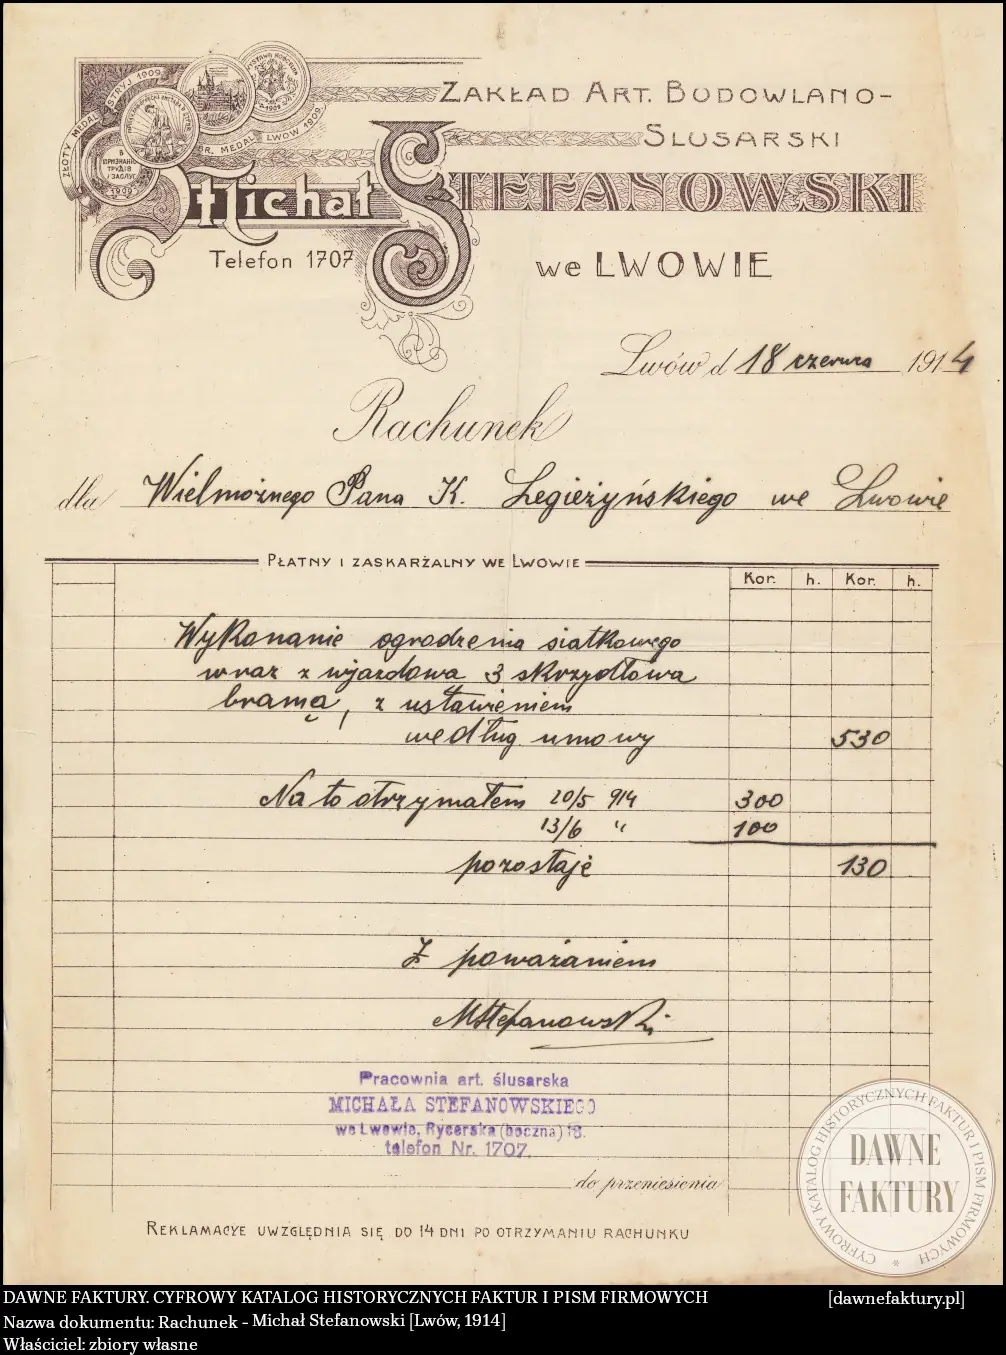 ZŁOTY MEDAL STRYJ 1909
SR. MEDAL LWÓW 1909
ZAKŁAD ART. BUDOWLANO-
ŚLUSARSKI
Michał STEFANOWSKI
Telefon 1707
we LWOWIE
Lwów d 18 czerwca 1914
Rachunek
dla Wielmożnego Pana K. Legieżyńskiego we Lwowie
PŁATNY I ZASKARŻALNY WE LWOWIE
Kor. h. Kor. h.
Wykonanie ogrodzenia siatkowego
wraz z wjazdowa 3 skrzydłowa
bramą, z ustawieniem
według umowy 530
Na to otrzymałem 20/5 914 300
13/6 " 100
pozostaje 130
Z poważaniem
MStefanowski
Pracownia art. ślusarska
MICHAŁA STEFANOWSKIEGO
we Lwowie, Rycerska (boczna) 18.
telefon Nr. 1707.
do przeniesienia
REKLAMACYE UWZGLĘDNIA SIĘ DO 14 DNI PO OTRZYMANIU RACHUNKU
CYFROWY KATALOG HISTORYCZNYCH FAKTUR I PISM FIRMOWYCH
DAWNE
FAKTURY
DAWNE FAKTURY. CYFROWY KATALOG HISTORYCZNYCH FAKTUR I PISM FIRMOWYCH [dawnefaktury.pl]
Nazwa dokumentu: Rachunek - Michał Stefanowski [Lwów, 1914]
Właściciel: zbiory własne